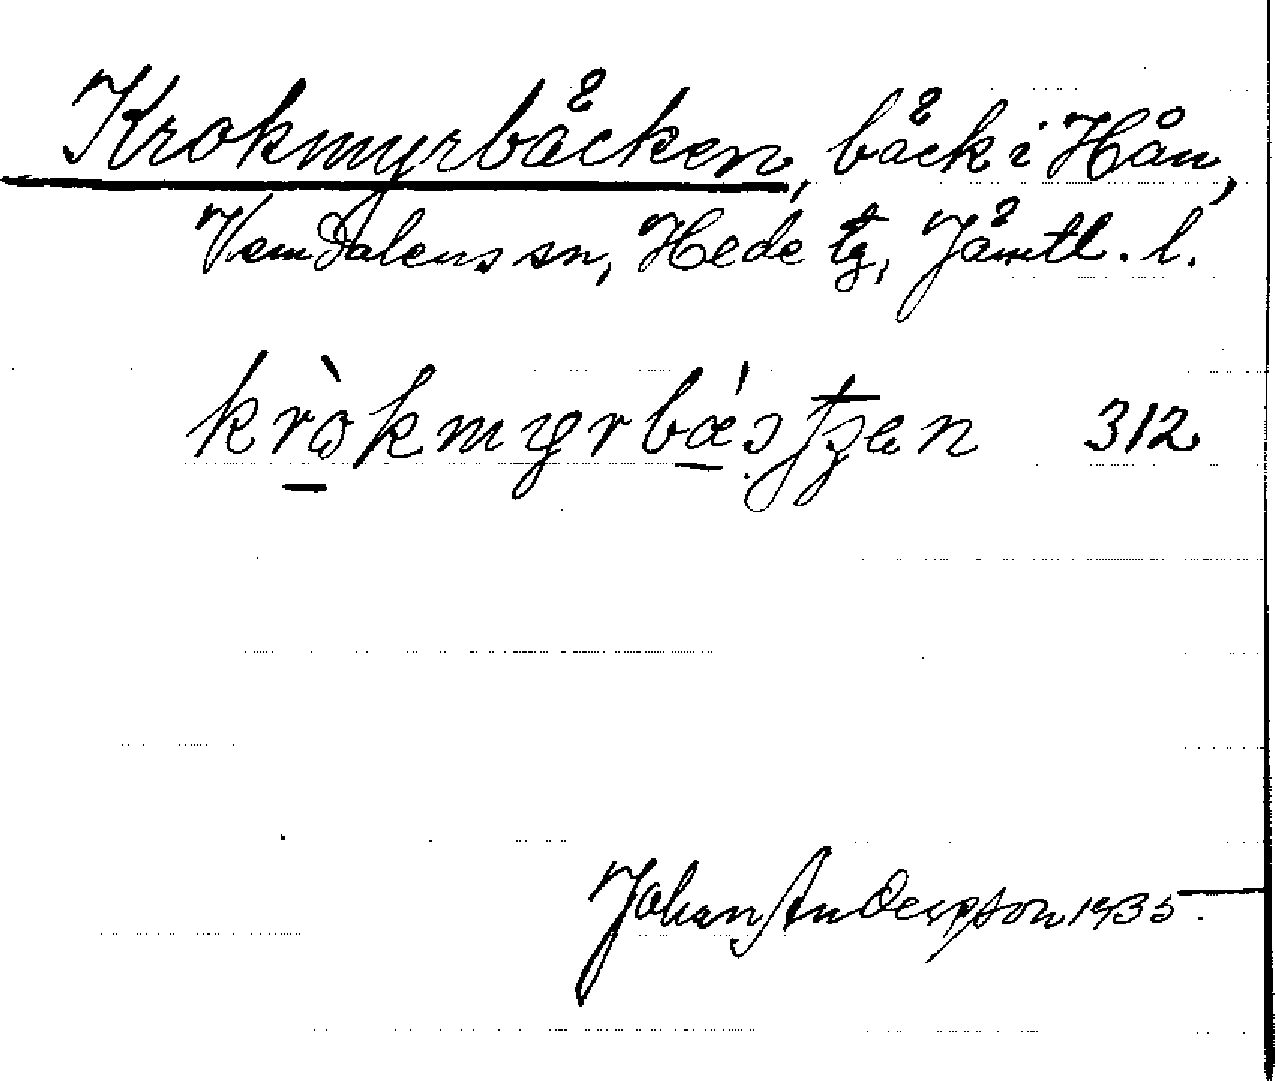 Krokmyrbäcken, bäck i Hån,
Vemdalens sn, Hede tg, Jämtl. l.
312
Johan Andersson 1935.